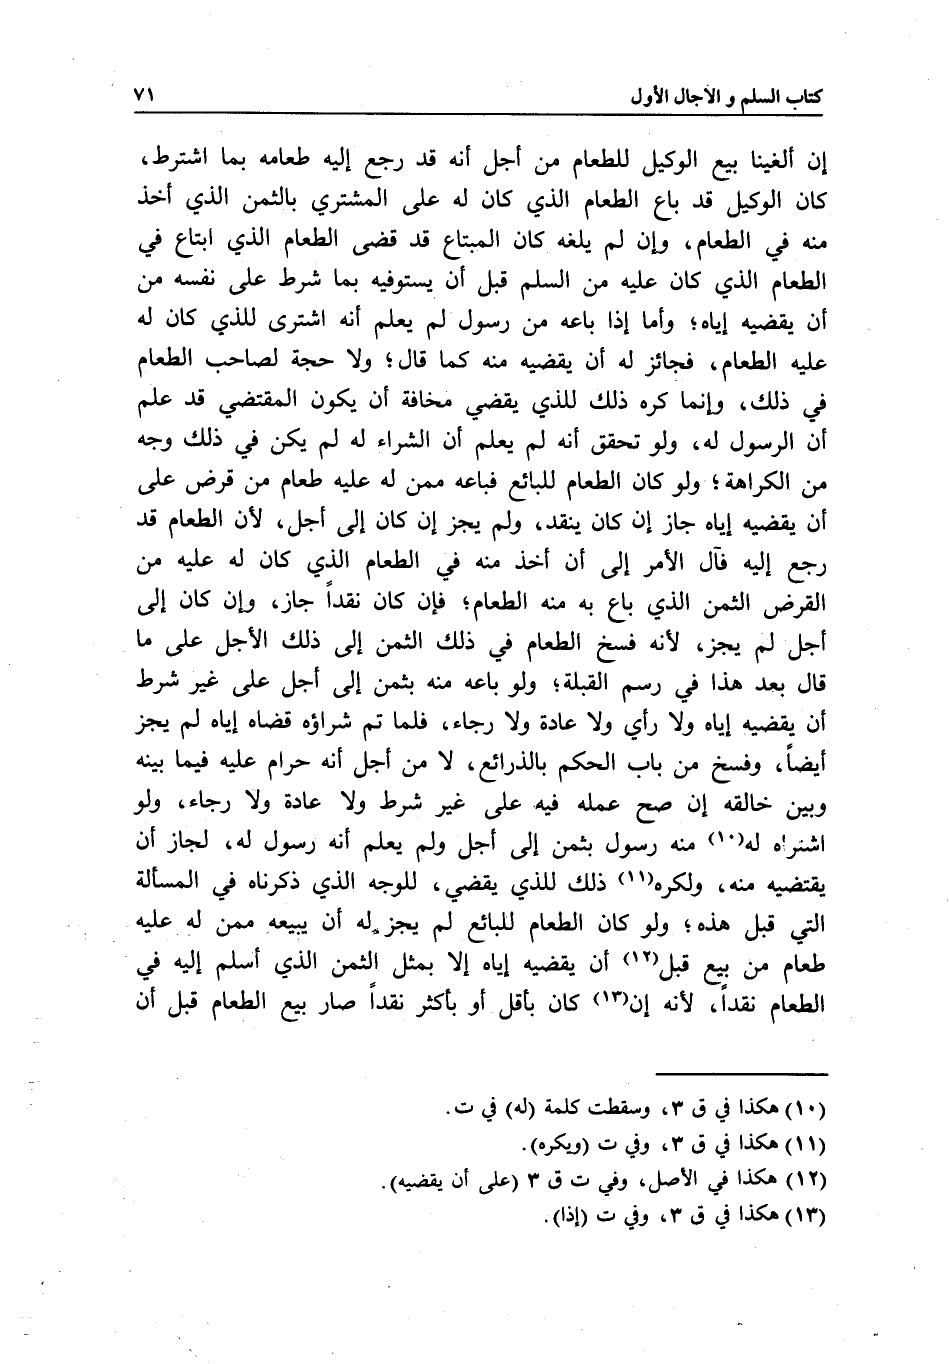 كتاب السلم و الآجال الأول ٧١
إن ألغينا بيع الوكيل للطعام من أجل أنه قد رجع إليه طعامه بما اشترط،
كان الوكيل قد باع الطعام الذي كان له على المشتري بالثمن الذي أخذ
منه في الطعام، وإن لم يلغه كان المبتاع قد قضى الطعام الذي ابتاع في
الطعام الذي كان عليه من السلم قبل أن يستوفيه بما شرط على نفسه من
أن يقضيه إياه؛ وأما إذا باعه من رسول لم يعلم أنه اشترى للذي كان له
عليه الطعام، فجائز له أن يقضيه منه كما قال؛ ولا حجة لصاحب الطعام
في ذلك، وإنما كره ذلك للذي يقضي مخافة أن يكون المقتضي قد علم
أن الرسول له، ولو تحقق أنه لم يعلم أن الشراء له لم يكن في ذلك وجه
من الكراهة؛ ولو كان الطعام للبائع فباعه ممن له عليه طعام من قرض على
أن يقضيه إياه جاز إن كان ينقد، ولم يجز إن كان إلى أجل، لأن الطعام قد
رجع إليه فآل الأمر إلى أن أخذ منه في الطعام الذي كان له عليه من
القرض الثمن الذي باع به منه الطعام؛ فإن كان نقداً جاز، وإن كان إلى
أجل لم يجز، لأنه فسخ الطعام في ذلك الثمن إلى ذلك الأجل على ما
قال بعد هذا في رسم القبلة؛ ولو باعه منه بثمن إلى أجل على غير شرط
أن يقضيه إياه ولا رأي ولا عادة ولا رجاء، فلما تم شراؤه قضاه إياه لم يجز
أيضاً، وفسخ من باب الحكم بالذرائع، لا من أجل أنه حرام عليه فيما بينه
وبين خالقه إن صح عمله فيه على غير شرط ولا عادة ولا رجاء، ولو
اشتراه له(١٠) منه رسول بثمن إلى أجل ولم يعلم أنه رسول له، لجاز أن
يقتضيه منه، ولكره(١١) ذلك للذي يقضي، للوجه الذي ذكرناه في المسألة
التي قبل هذه؛ ولو كان الطعام للبائع لم يجز له أن يبيعه ممن له عليه
طعام من بيع قبل(١٢) أن يقضيه إياه إلا بمثل الثمن الذي أسلم إليه في
الطعام نقداً، لأنه إن(١٣) كان بأقل أو بأكثر نقداً صار بيع الطعام قبل أن
(١٠) هكذا في ق ٣، وسقطت كلمة (له) في ت.
(١١) هكذا في ق ٣، وفي ت (ويكره).
(١٢) هكذا في الأصل، وفي ت ق ٣ (على أن يقضيه).
(١٣) هكذا في ق ٣، وفي ت (إذا).